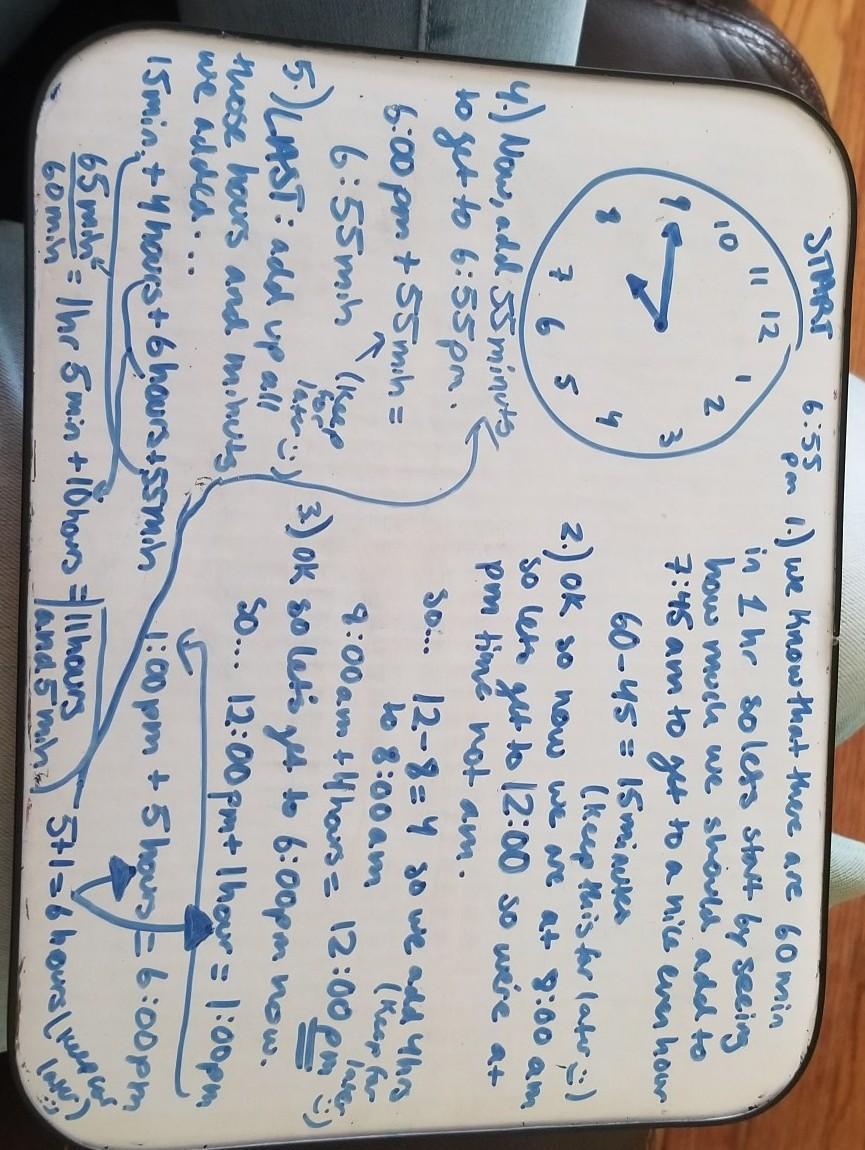 START
12
1
2
3
4
5
6
7
8
9
10
11
6:55 pm
1.) we know that there are 60 min
in 1 hr so lets start by seeing
how much we should add to
7:45 am to get to a nice even hour
60-45 = 15 minutes
(keep this for later :)
2.) OK so now we are at 8:00 am
so lets get to 12:00 so we're at
pm time not am.
so... 12-8=4 so we add 4 hrs
to 8:00 am
(keep for later :)
8:00 am + 4 hours = 12:00 pm
3.) OK so let's get to 6:00 pm now.
so... 12:00 pm + 1 hour = 1:00 pm
1:00 pm + 5 hours = 6:00 pm
5+1 = 6 hours
4.) Now, add 55 minutes
to get to 6:55 pm.
6:00 pm + 55 min =
6:55 min
(keep for later :)
5.) LAST: add up all
those hours and minutes
we added...
15 min. + 4 hours + 6 hours + 55 min
65 min
60 min
= 1 hr 5 min + 10 hours =
11 hours
and 5 min